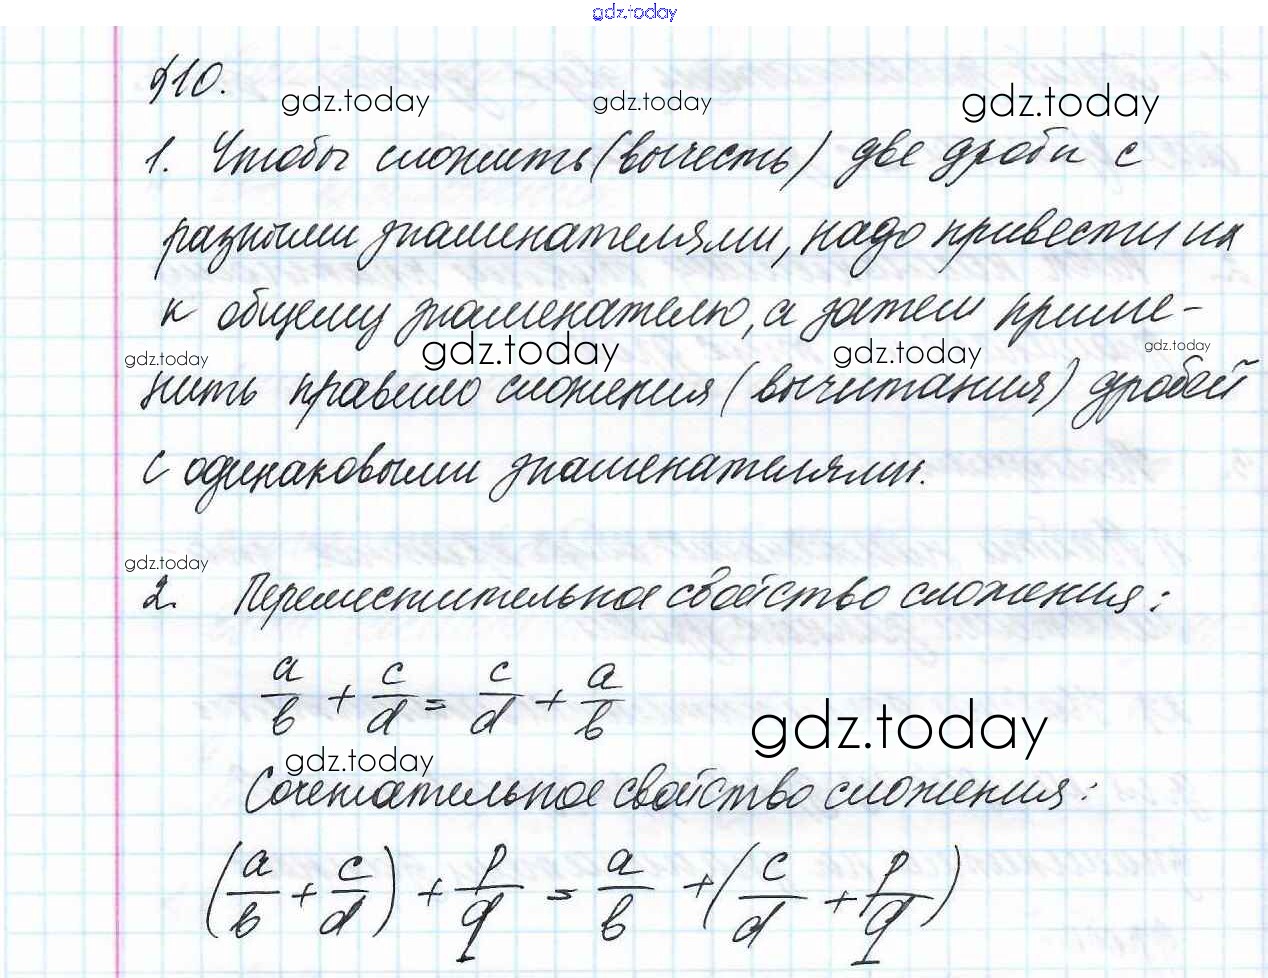 gdz.today
§10.
gdz.today gdz.today gdz.today
1. Чтобы сложить (вычесть) две дроби с
разными знаменателями, надо привести их
к общему знаменателю, а затем приме-
gdz.today gdz.today gdz.today gdz.today
нить правило сложения (вычитания) дробей
с одинаковыми знаменателями.
gdz.today
2. Переместительное свойство сложения:
a/b + c/d = c/d + a/b
gdz.today
gdz.today
Сочетательное свойство сложения:
(a/b + c/d) + p/q = a/b + (c/d + p/q)